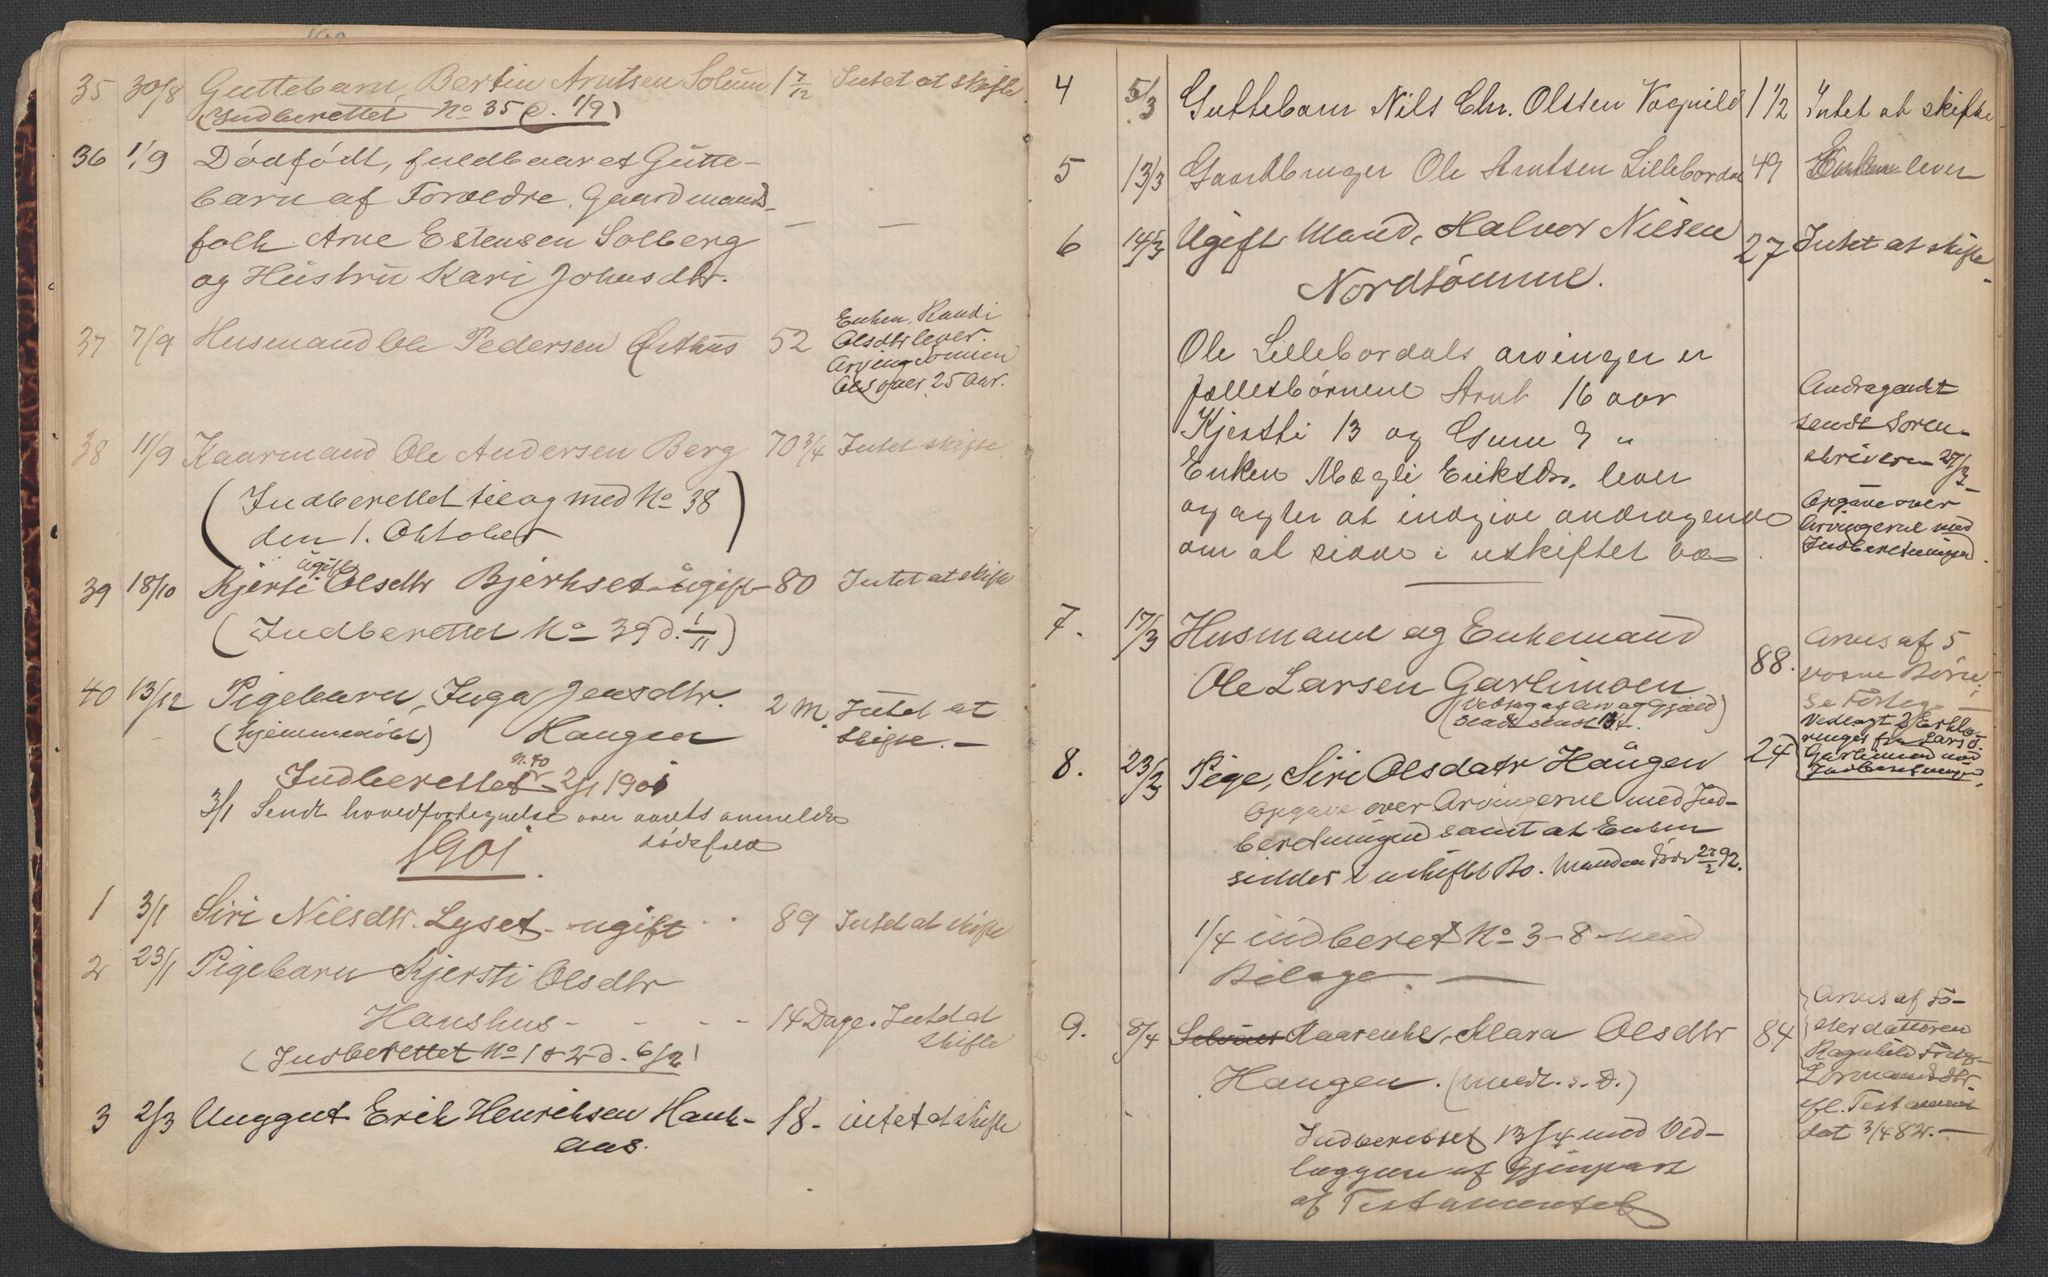 35 30/8 Guttebarn, Bertin Arntsen Solum 1 7/12 Intet at skifte
(Indberettet No 35 d. 1/9)
36 1/9 Dødfødt, fuldbaaret Gutte-
barn af Forældre, Gaardmands-
folk Arne Estensen Solberg — —
og Hustru Kari Johnsdtr.
37 7/9 Husmand Ole Pedersen Østhus 52 Enken, Randi
Olsdtr lever.
Arving Sønnen
Ole over 25 Aar.
38 11/9 Kaarmand Ole Andersen Berg 70 3/4 Intet skifte.
(Indberettet til og med No 38
den 1. Oktober)
ugift
39 18/10 Kjersti Olsdtr Bjerkset ugift 80 Intet at skifte
(Indberettet No 39 d. 1/11)
40 13/12 Pigebarn, Inga Jensdtr. 2 M. Intet at
(hjemmedøbt) Haugen skifte. —
Indberettet n. 40 2/1 1901
3/1 Sendt hovedfortegnelse over aarets anmeldte
dødsfald
1901.
1 3/1 Siri Nilsdtr. Lyset - ugift 89 Intet at skifte
2 23/1 Pigebarn Kjersti Olsdtr
Haushus - - - - 14 Dage. Intet at
skifte
(Indberettet No 1 & 2 d. 6/2)
3 2/3 Unggut Erik Henriksen Hauk-
aas. 18 - intet at skifte
4 5/3 Guttebarn Nils Chr. Olsen Vognild 1 1/2 Intet at skifte
5 13/3 Gaardbruger Ole Arntsen Lillebordal 49 Enken lever
6 14/3 Ugift Mand, Halvor Nilsen 27 Intet at skifte
Nordtømme.
Ole Lillebordals arvinger er
fællesbørnene Arnt 16 aar
Kjersti 13 og Guru 9 "
Enken Magli Eriksdr. lever
og agter at indgive andragende
om at sidde i uskiftet bo —
Andragendet
sendt Soren-
skriveren 27/3
Opgave over
Arvingerne med
Indberetningen
7. 17/3 Husmand og Enkemand
Ole Larsen Garlimoen 88.
(Vedlag af Arv og Gjæld)
Arves af 5
voxne Børn;
se Fortegn —
Vedlagt 2 Erklæ-
ringer fra Lars O.
Garlimoen med
Indberetningen.
8. 23/3 Pige, Siri Olsdatr Haugen 24
Opgave over Arvingerne med Ind-
beretningen samt at Enken
sidder i uskiftet Bo. Manden død 27/2 92.
1/4 indberet No 3-8 med
Bilage. —
9. 8/4 Kaarenke, Mara Olsdtr 84
Haugen. (    )
Arves af Fo-
sterdatteren
Ragnhild

ifl. Testament
dat 3/4 82. —
Indberettet 13/4 med Ved-
læggen af Gjenpart
af Testamentet